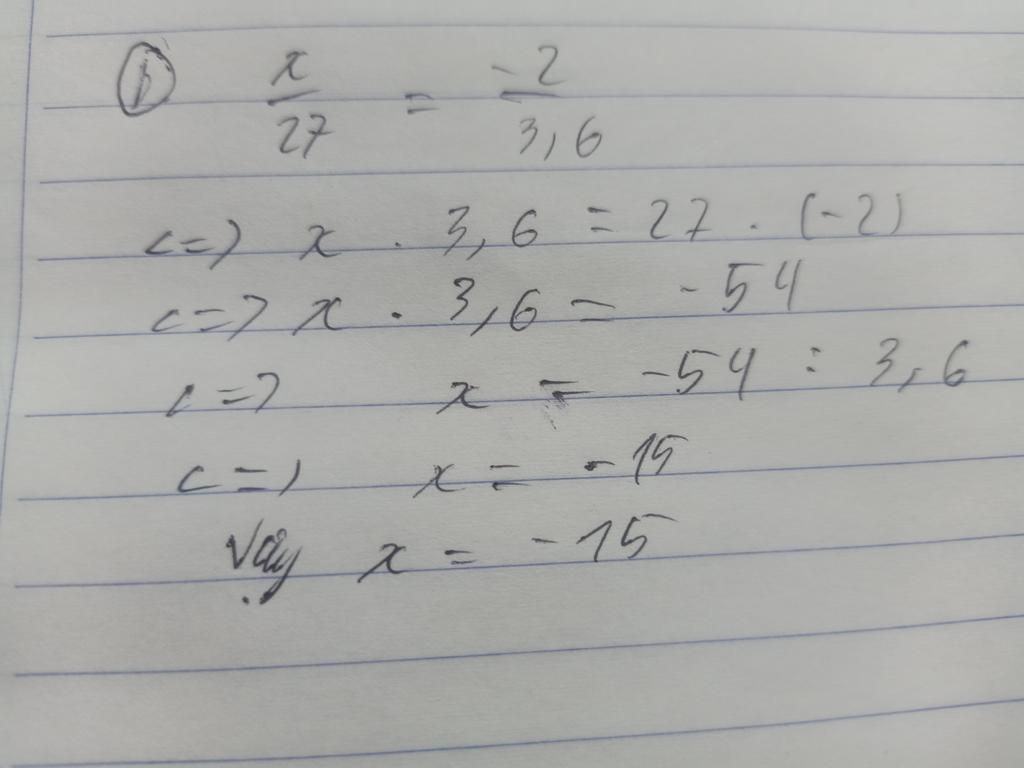 b) x/27 = -2/3,6
<=> x . 3,6 = 27 . (-2)
<=> x . 3,6 = -54
<=> x = -54 : 3,6
<=> x = -15
Vậy x = -15